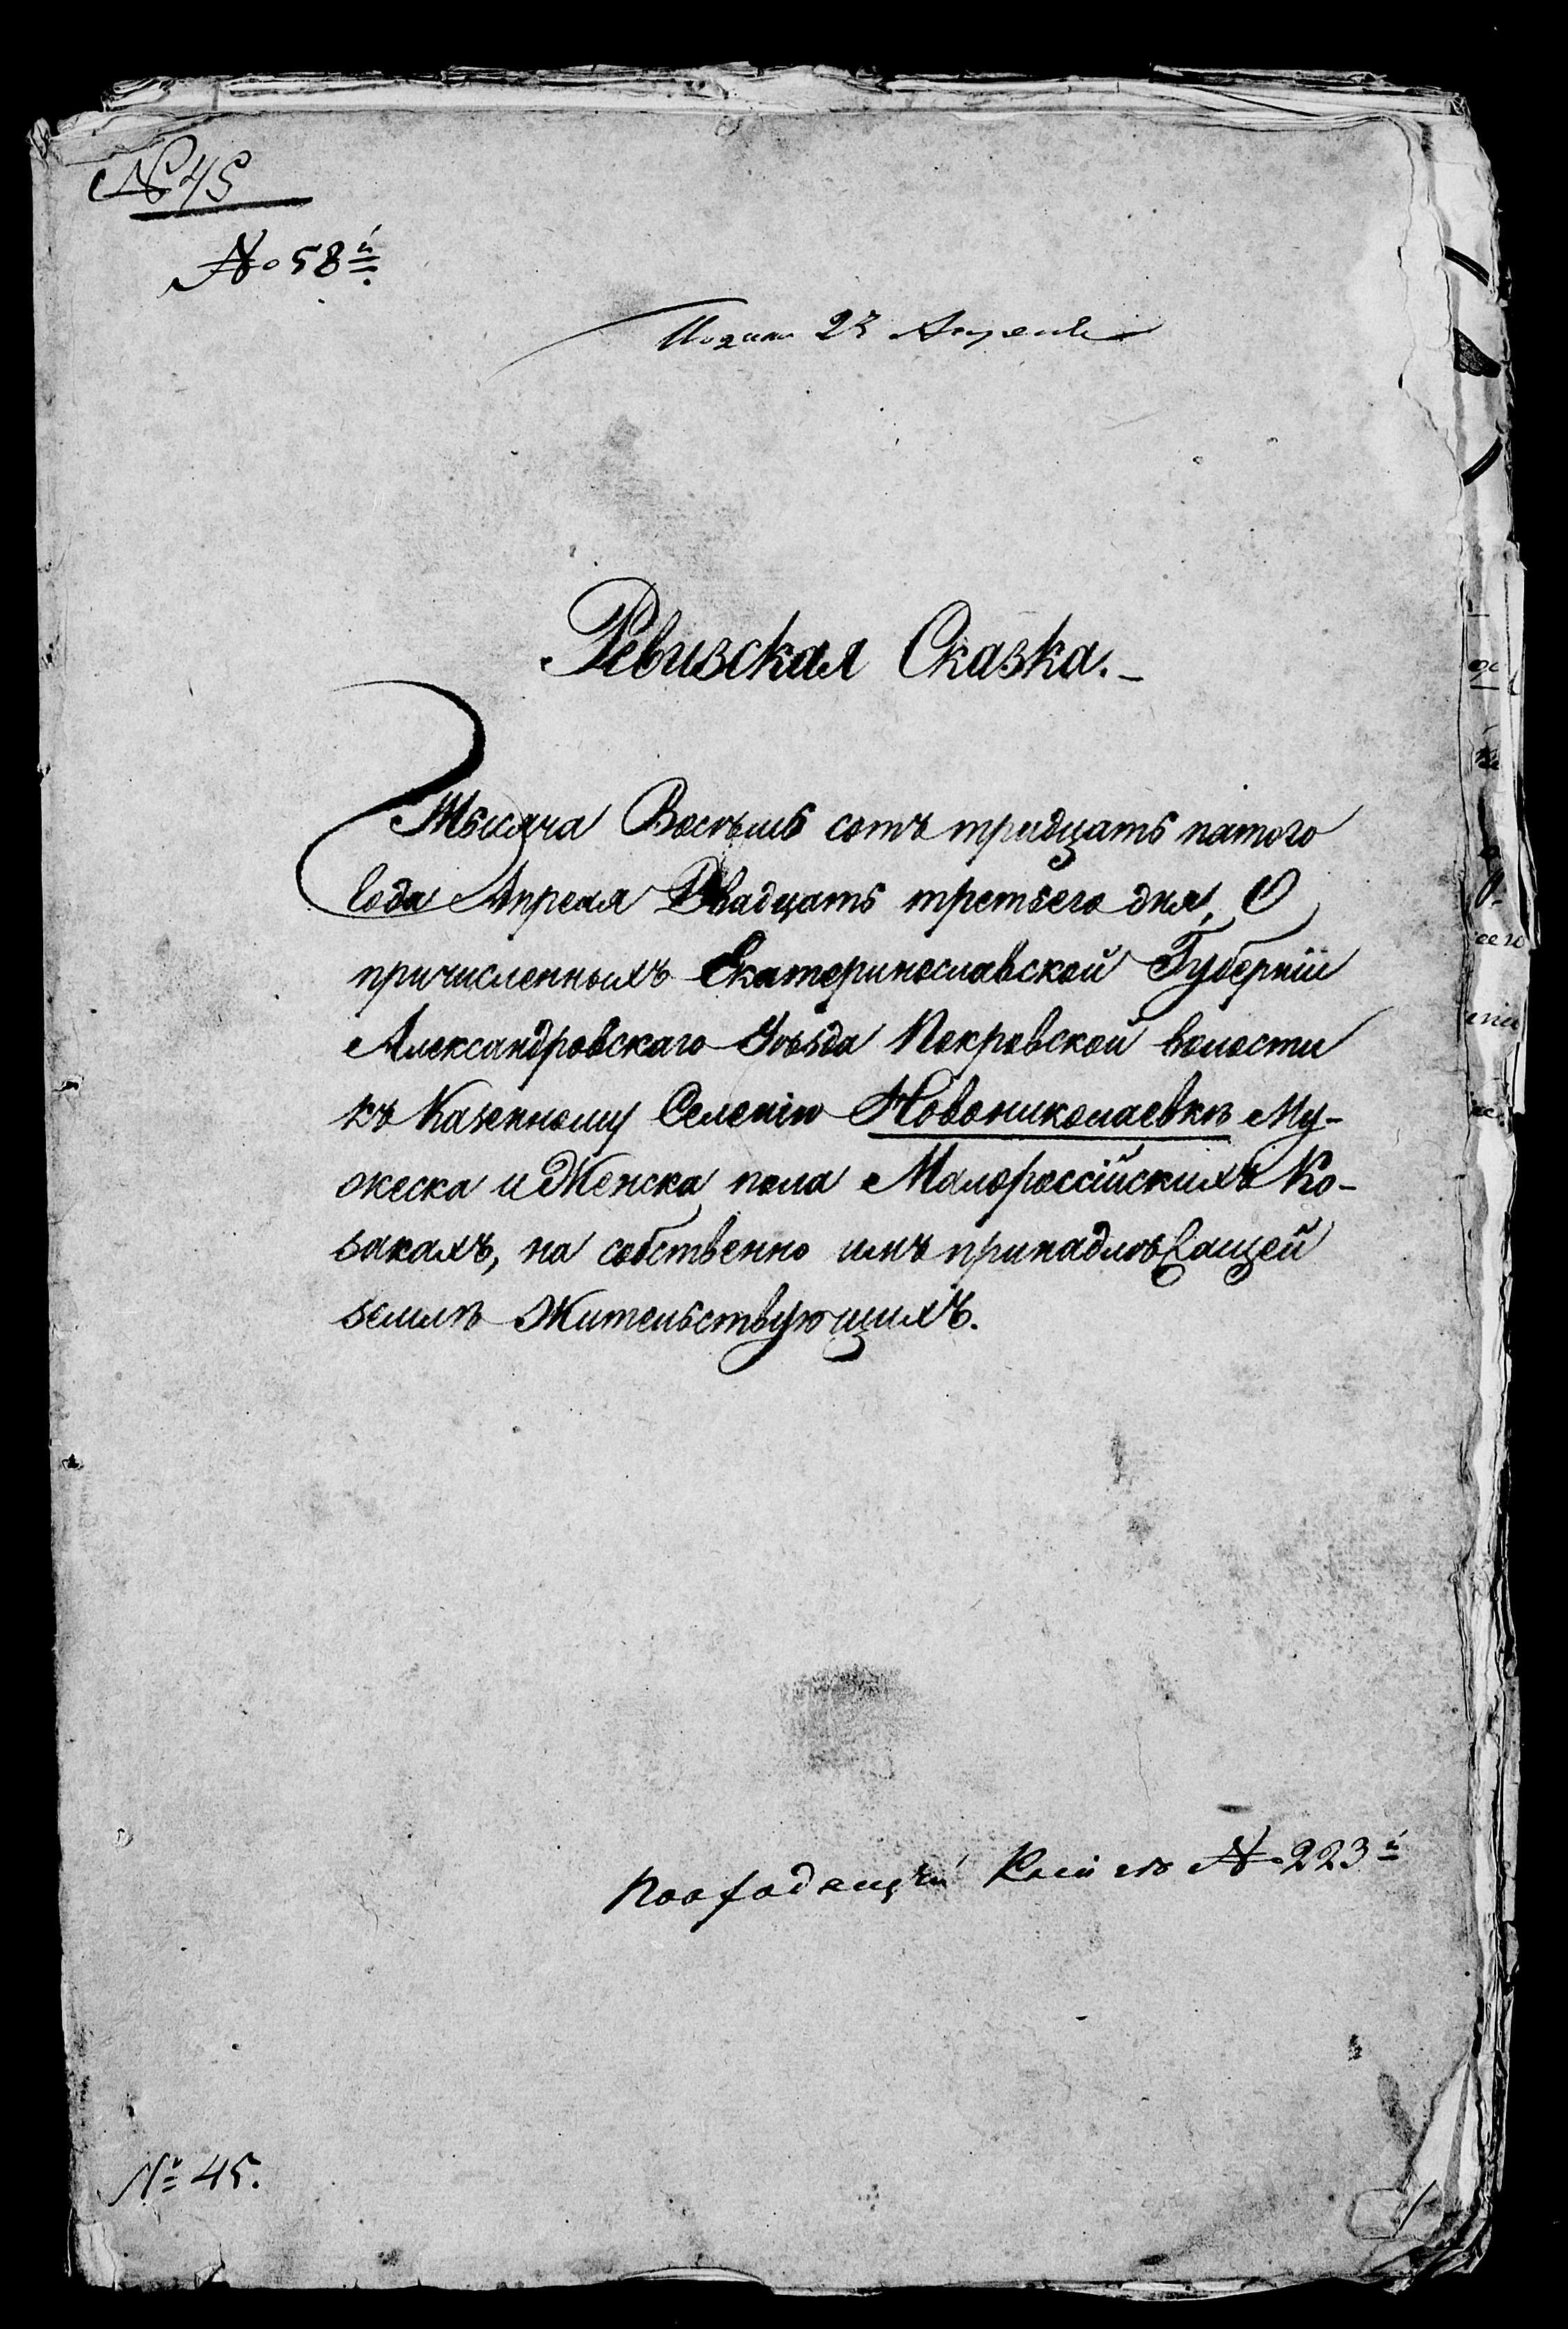 № 45
№ 58й
23 Апреля
Ревизская Сказка.
Тысяча Восѣмь сотъ тридцать пятого
года Апреля Двадцать третьего дня, О
причисленныхъ Екатеринославской Губерніи
Александровскаго Уѣзда Покровской волости
къ Казенному Селенію Новониколаевкѣ Му-
жеска и Женска пола Малороссійскихъ Ко-
закахъ, на собственно имъ принадлѣжащей
землѣ Жительствующихъ.
№ 223й
№ 45.
1